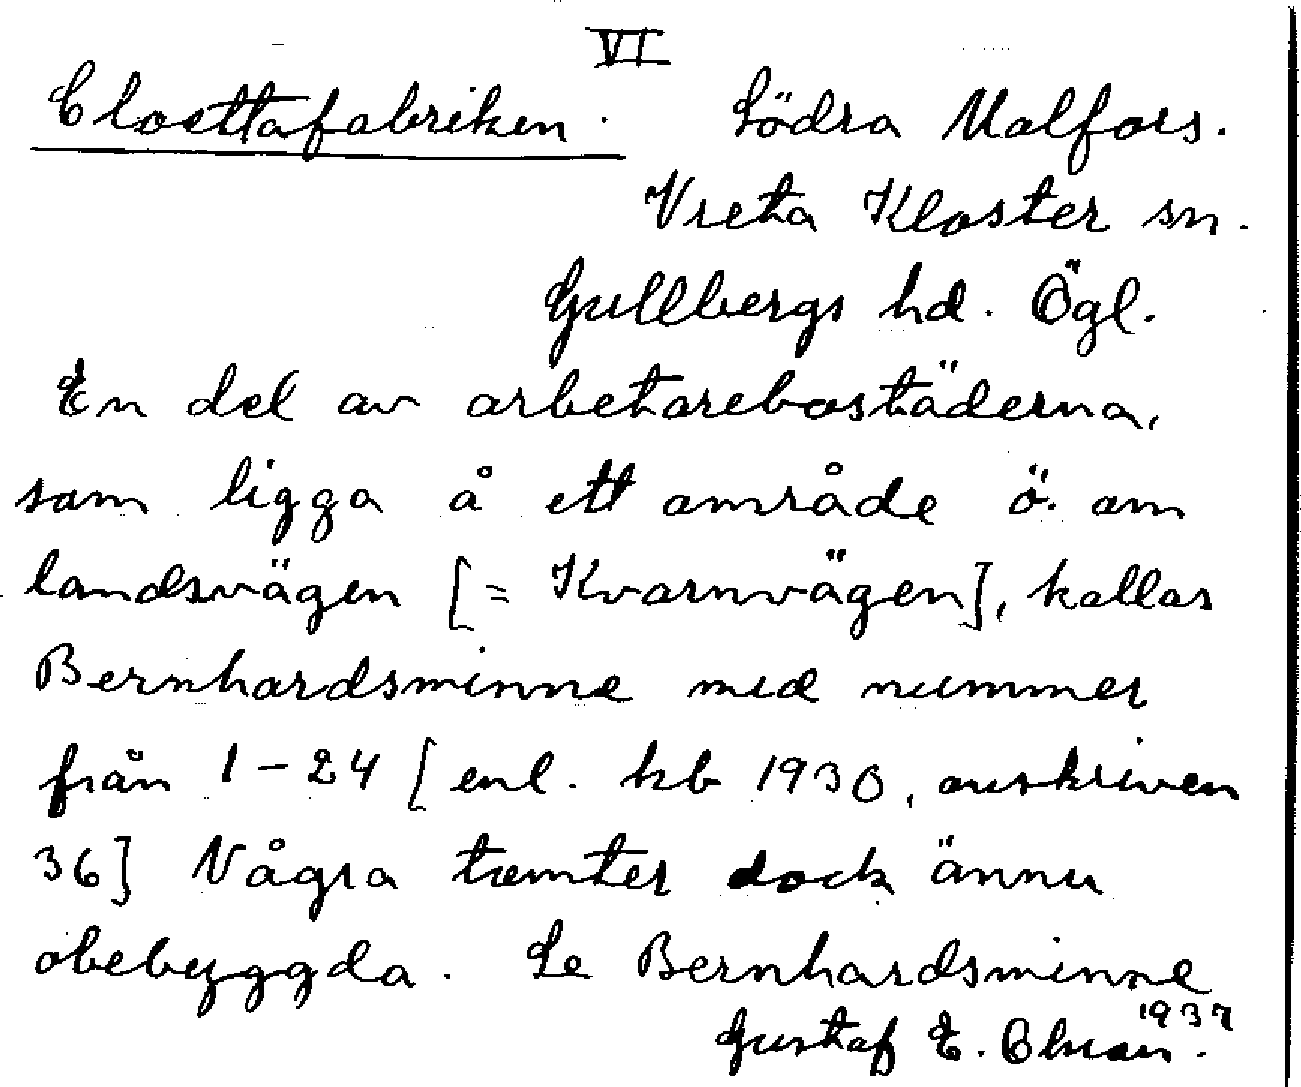 VI
Closttafabriken. Södra Malfors.
Vreta Kloster sn.
Gullbergs hd. Ögl.
En del av arbetarebostäderna,
som ligga å ett område ö. om
landsvägen [= Kvarnvägen], kallas
Bernhardsminne med nummer
från 1-24 [enl. kb 1930, avskriven
36] Några tomter dock ännu
obebyggda. Se Bernhardsminne
1937
Gustaf E.